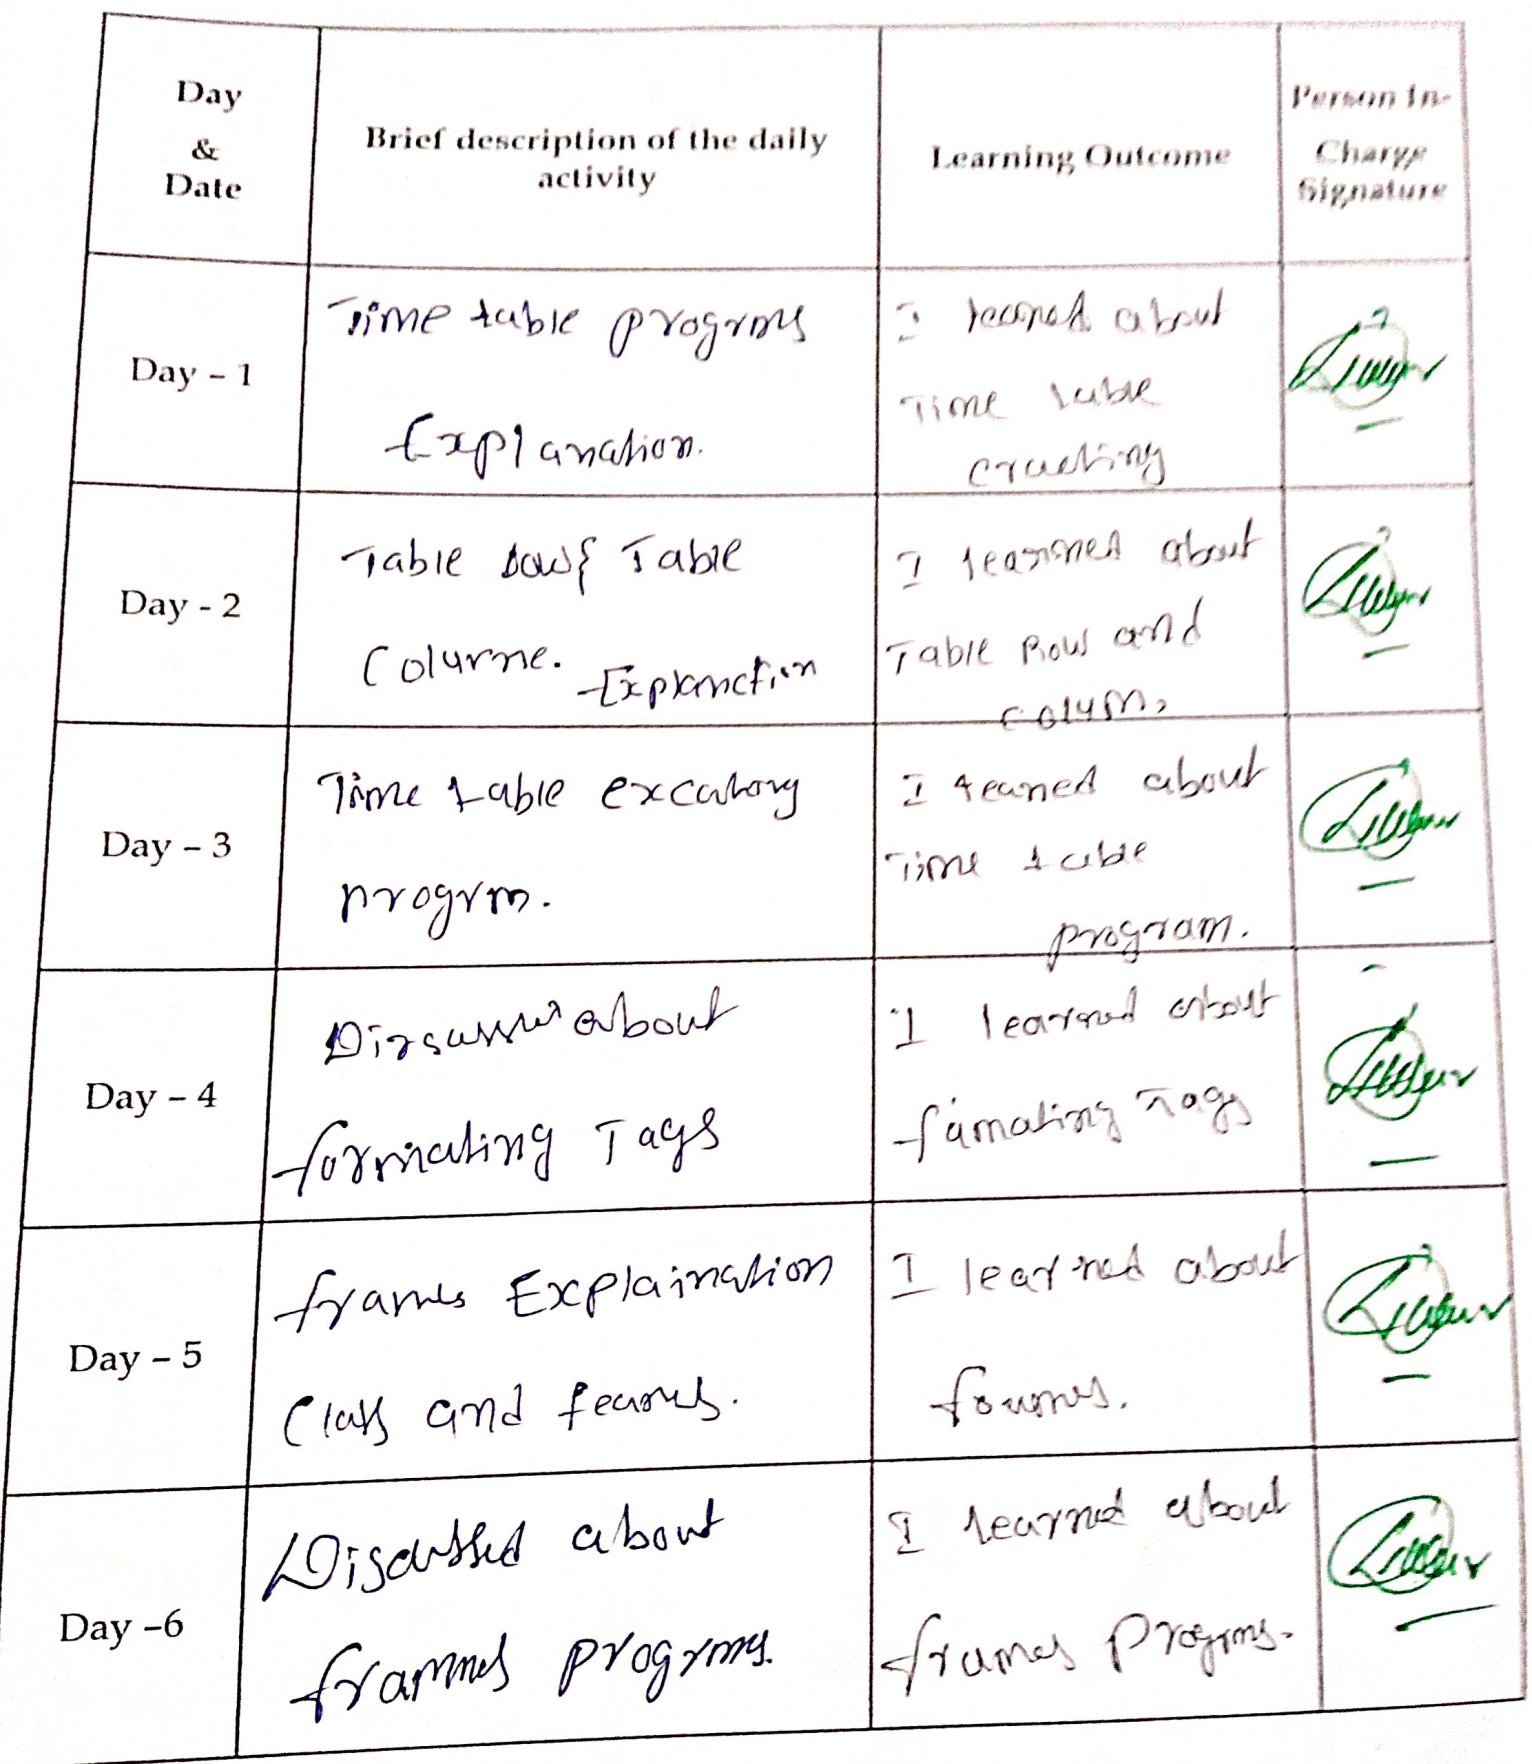 Day
&
Date
Brief description of the daily
activity
Learning Outcome
Person In-
Charge
Signature
Day – 1
Time table progrms
Explanation.
I learned about
Time table
craeting
Day - 2
Table Row & Table
Colurne.
Explanction
I learned about
Table Row and
colum,
Day – 3
Time table excatory
progrm.
I leaned about
Time table
program.
Day – 4
about
formating Tags
I learned about
famating Tags
Day – 5
frames Explaination
Class and
I learned about
Day –6
Discussed about
frammes progrms.
I learned about
frames Progrms.